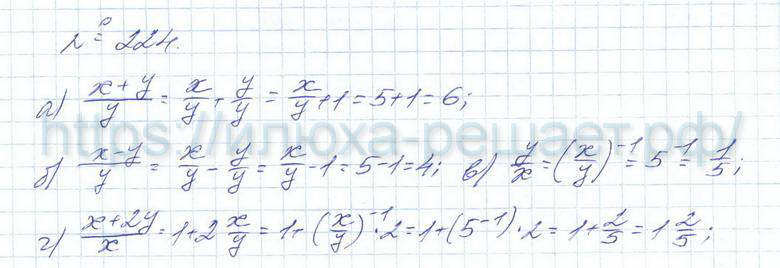 № 224.
а) (x+y)/y = x/y + y/y = x/y + 1 = 5+1 = 6;
https://илюха-решает.рф/
б) (x-y)/y = x/y - y/y = x/y - 1 = 5-1 = 4; в) y/x = (x/y)⁻¹ = 5⁻¹ = 1/5;
г) (x+2y)/x = 1+2 x/y = 1+(x/y)⁻¹·2 = 1+(5⁻¹)·2 = 1+2/5 = 1 2/5;